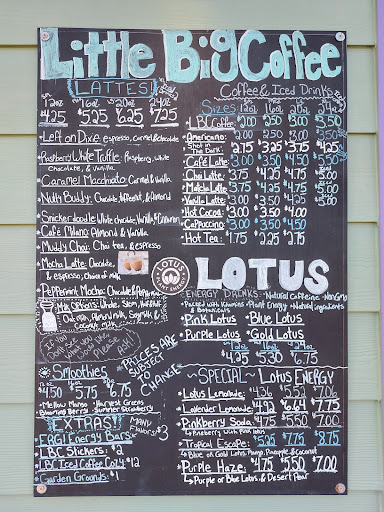 Little Big Coffee
LATTES!
12oz 16oz 20oz 24oz
4.25 5.25 6.25 7.25
*Left on Dixie espresso, Carmel & chocolate
*Raspberry White Truffle: Raspberry, White Chocolate, & Vanilla.
*Caramel Macchiato: Carmel & Vanilla
*Nutti Buddy: Chocolate, & Almond
*Snickerdoodle White chocolate, Vanilla, & Cinnamon
*Café Milano Almond & Vanilla
*Muddy Chai: Chai tea, & espresso
*Mocha Latte: Chocolate, & espresso, Choice of milk
*Peppermint Mocha: Chocolate & Peppermint
Milk Options: Whole, Skim, Half/Half &
2% milk, Almond milk, Soy milk &
Coconut milk
If you
Don't see
what you
Please
ASK!
*PRICES ARE
SUBJECT
TO
CHANGE*
Smoothies
12oz 16oz 20oz 24oz
4.50 5.25 5.75 6.75
*Mellow Mango *Harvest Greens
*Blooming Berry *Summer Strawberry
EXTRAS!
*ERG! Energy Bars Many Flavors $3
*LBC Stickers $2
*LBC Iced Coffee Cozy $12
*Garden Grounds: $1
Coffee & Iced Drinks
Sizes: 12oz 16oz 20oz 24oz
*LBC Coffee: 2.00 2.50 3.00 3.50
*Americano: 2.00 2.50 3.00 3.50
*Shot in The Dark: 2.75 3.25 3.75 4.25
*Café Latte 3.00 3.50 4.50 5.50
*Chai Latte 3.75 4.25 4.75
*Matcha Latte 3.75 4.25 4.75
*Vanilla Latte 3.00 3.50 4.50
*Hot Cocoa: 3.00 3.50 4.00
*Cappuccino 3.00 3.50 4.50
*Hot Tea: 1.75 2.25 2.75
LOTUS
PLANT ENERGY
LOTUS
ENERGY DRINKS: *Natural Caffeine *Non GMO
*Packed with Vitamins & Botanicals *Plant Energy *Natural ingredients
*Pink Lotus *Blue Lotus
*Purple Lotus *Gold Lotus
16oz 24oz
4.25 5.30 6.75
~SPECIAL~ Lotus ENERGY
*Lotus Lemonade: 4.36 5.50 7.06
*Lavender Lemonade 4.92 6.64 7.75
*Pinkberry Soda 4.75 5.50 7.00
↳Pineberry with Pink lotus
*Tropical Escape: 5.25 7.75 8.75
↳Blue or Gold Lotus, Mango, Pineapple & Coconut
*Purple Haze: 4.75 5.50 7.00
↳Purple or Blue Lotus, & Desert Pear